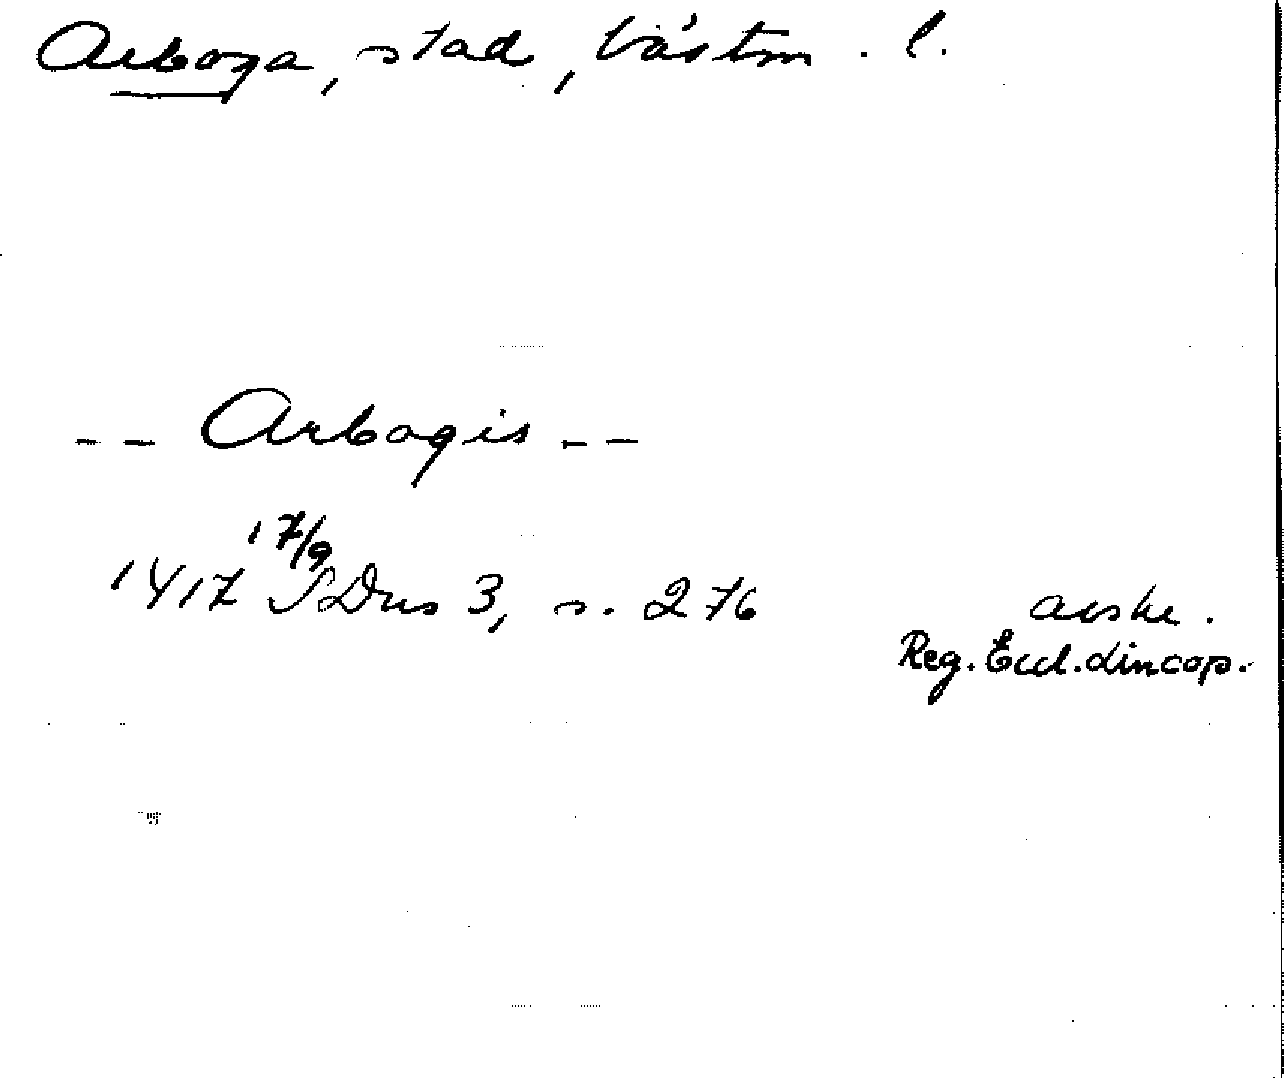 Arboga, stad, Västm. l.
-- Arbogis --
17/9
1417 SDns 3, s. 276 avskr.
Reg. Eccl. Lincop.